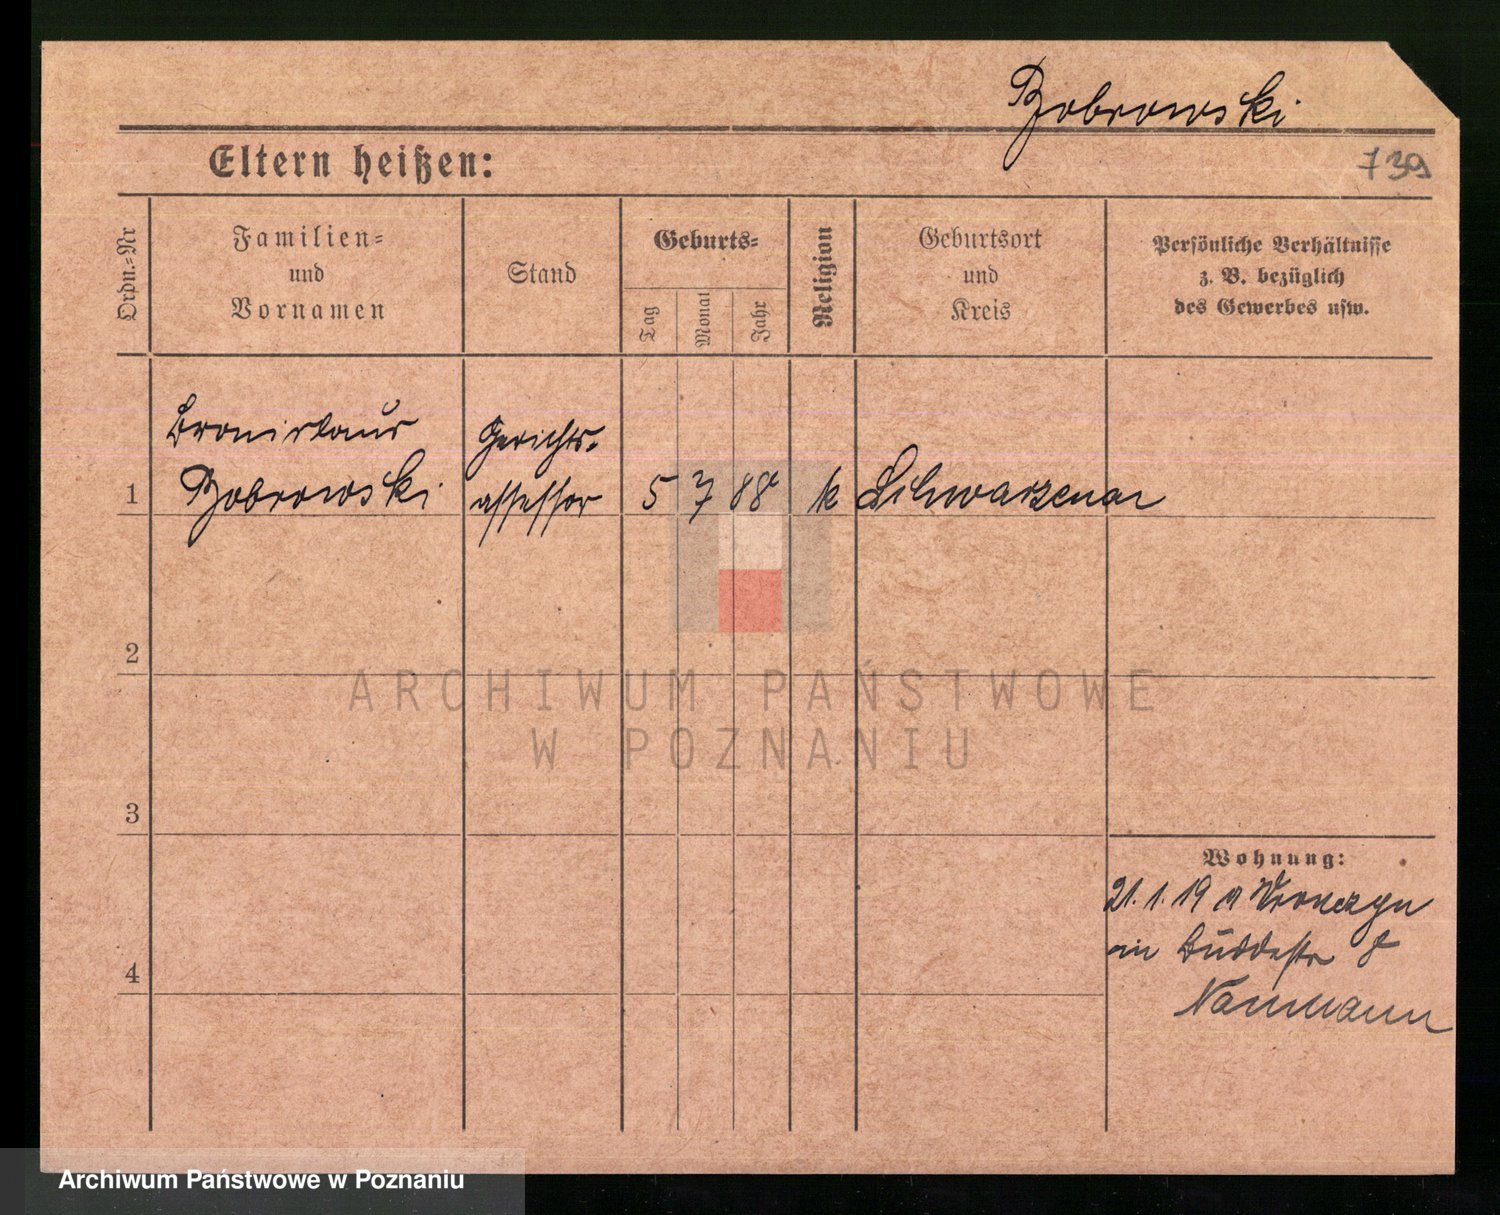 Bobrowski
Eltern heißen:
739
Ordn.-Nr
Familien-
und
Vornamen
Stand
Geburts-
Tag
Monat
Jahr
Religion
Geburtsort
und
Kreis
Persönliche Verhältnisse
z. B. bezüglich
des Gewerbes usw.
Bronislaus
Bobrowski
Gerichts-
assessor
1
5 7 88
k
Schwarzenau
2
3
4
Wohnung:
21. 1. 19 a Wronczyn
in Buddestr 8
Naumann
ARCHIWUM PAŃSTWOWE
W POZNANIU
Archiwum Państwowe w Poznaniu